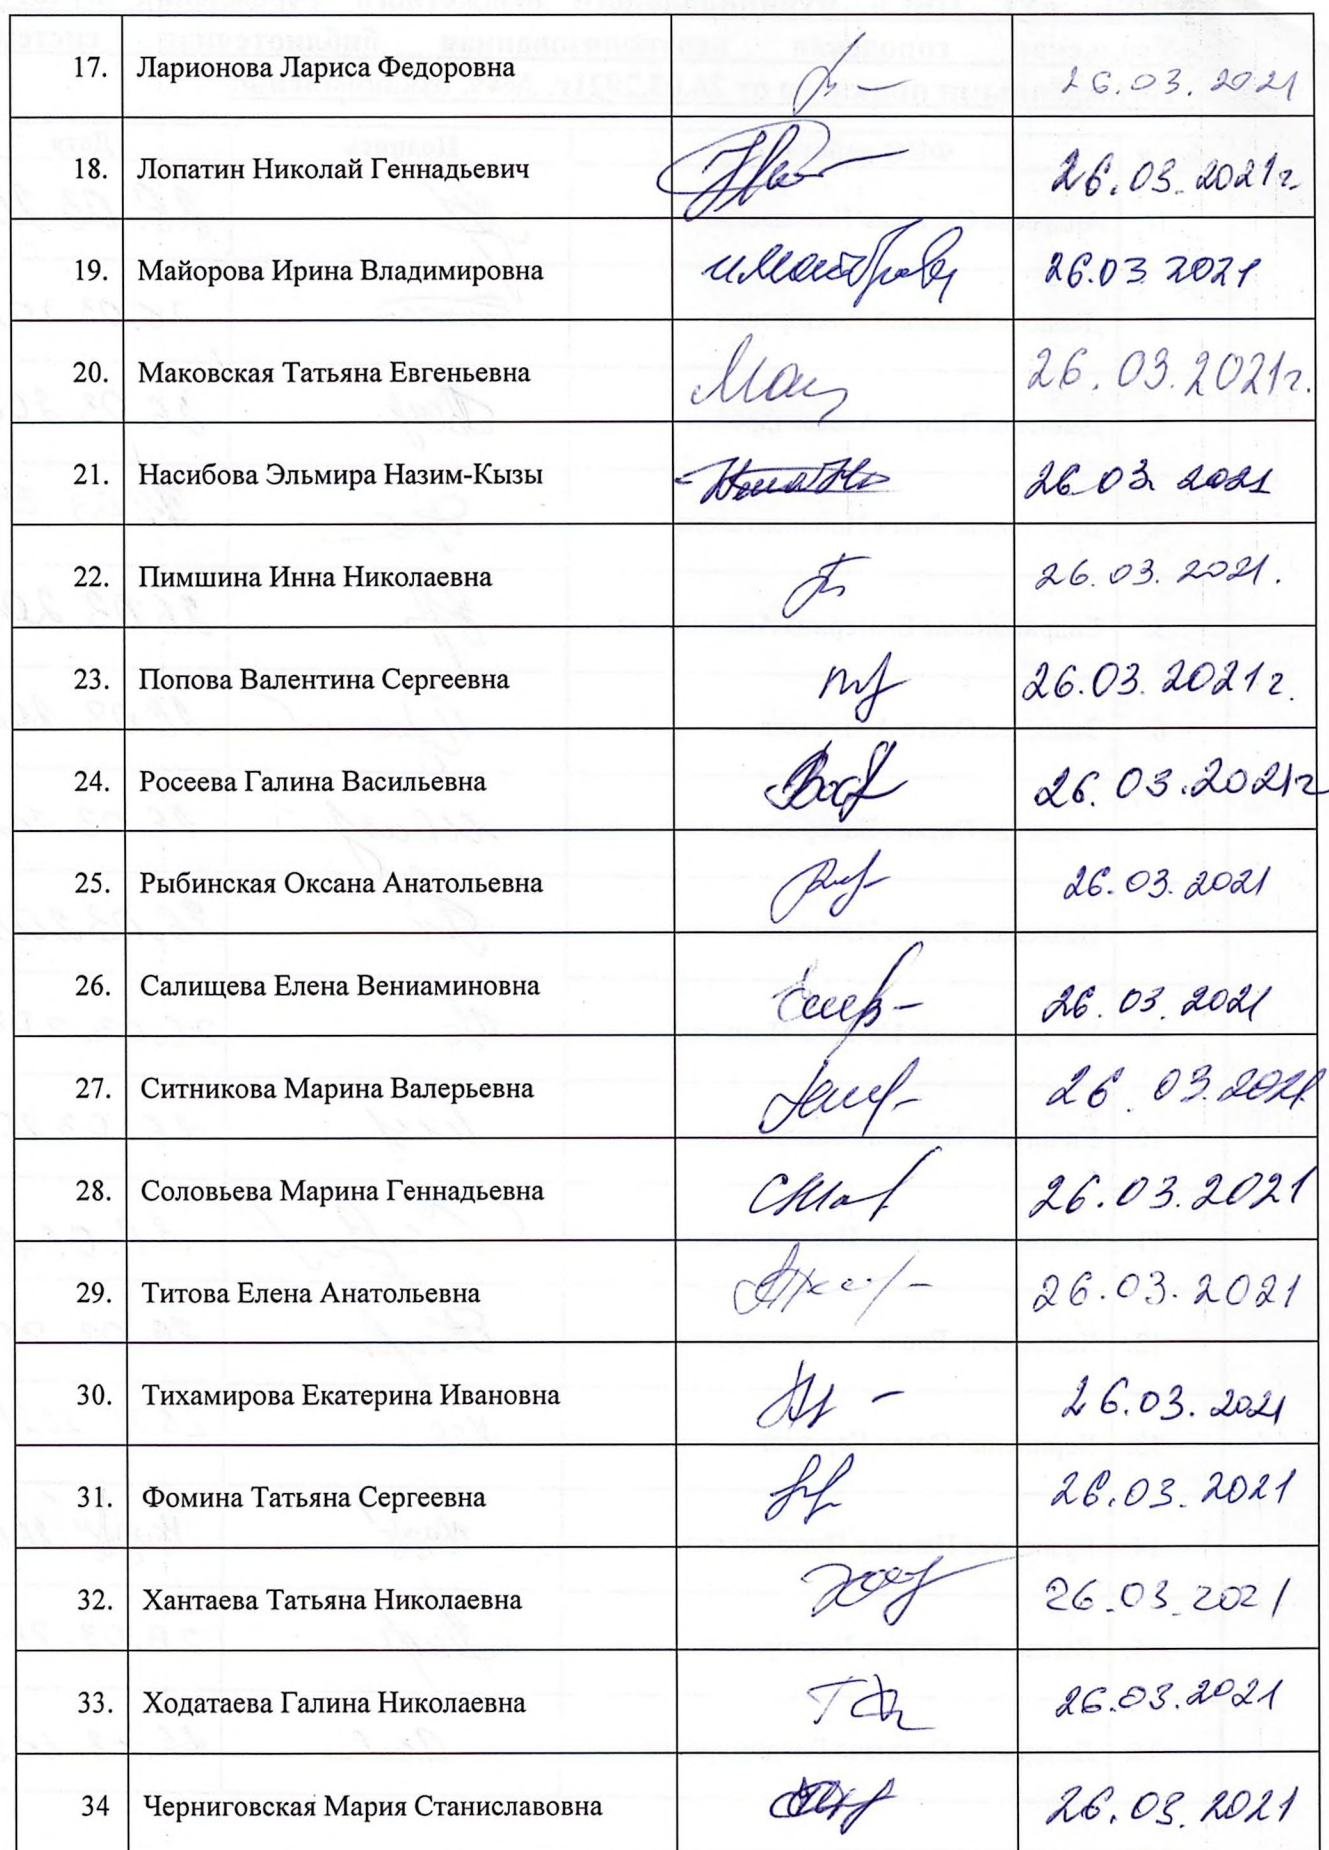 17. Ларионова Лариса Федоровна 26.03.2021
18. Лопатин Николай Геннадьевич 26.03.2021г.
19. Майорова Ирина Владимировна 26.03 2021
20. Маковская Татьяна Евгеньевна 26.03.2021г.
21. Насибова Эльмира Назим-Кызы 26.03 2021
22. Пимшина Инна Николаевна 26.03.2021.
23. Попова Валентина Сергеевна 26.03.2021г.
24. Росеева Галина Васильевна 26.03.2021г
25. Рыбинская Оксана Анатольевна 26.03.2021
26. Салищева Елена Вениаминовна 26.03.2021
27. Ситникова Марина Валерьевна 26.03.2021
28. Соловьева Марина Геннадьевна 26.03.2021
29. Титова Елена Анатольевна 26.03.2021
30. Тихамирова Екатерина Ивановна 26.03.2021
31. Фомина Татьяна Сергеевна 26.03.2021
32. Хантаева Татьяна Николаевна 26.03.2021
33. Ходатаева Галина Николаевна 26.03.2021
34 Черниговская Мария Станиславовна 26.03.2021